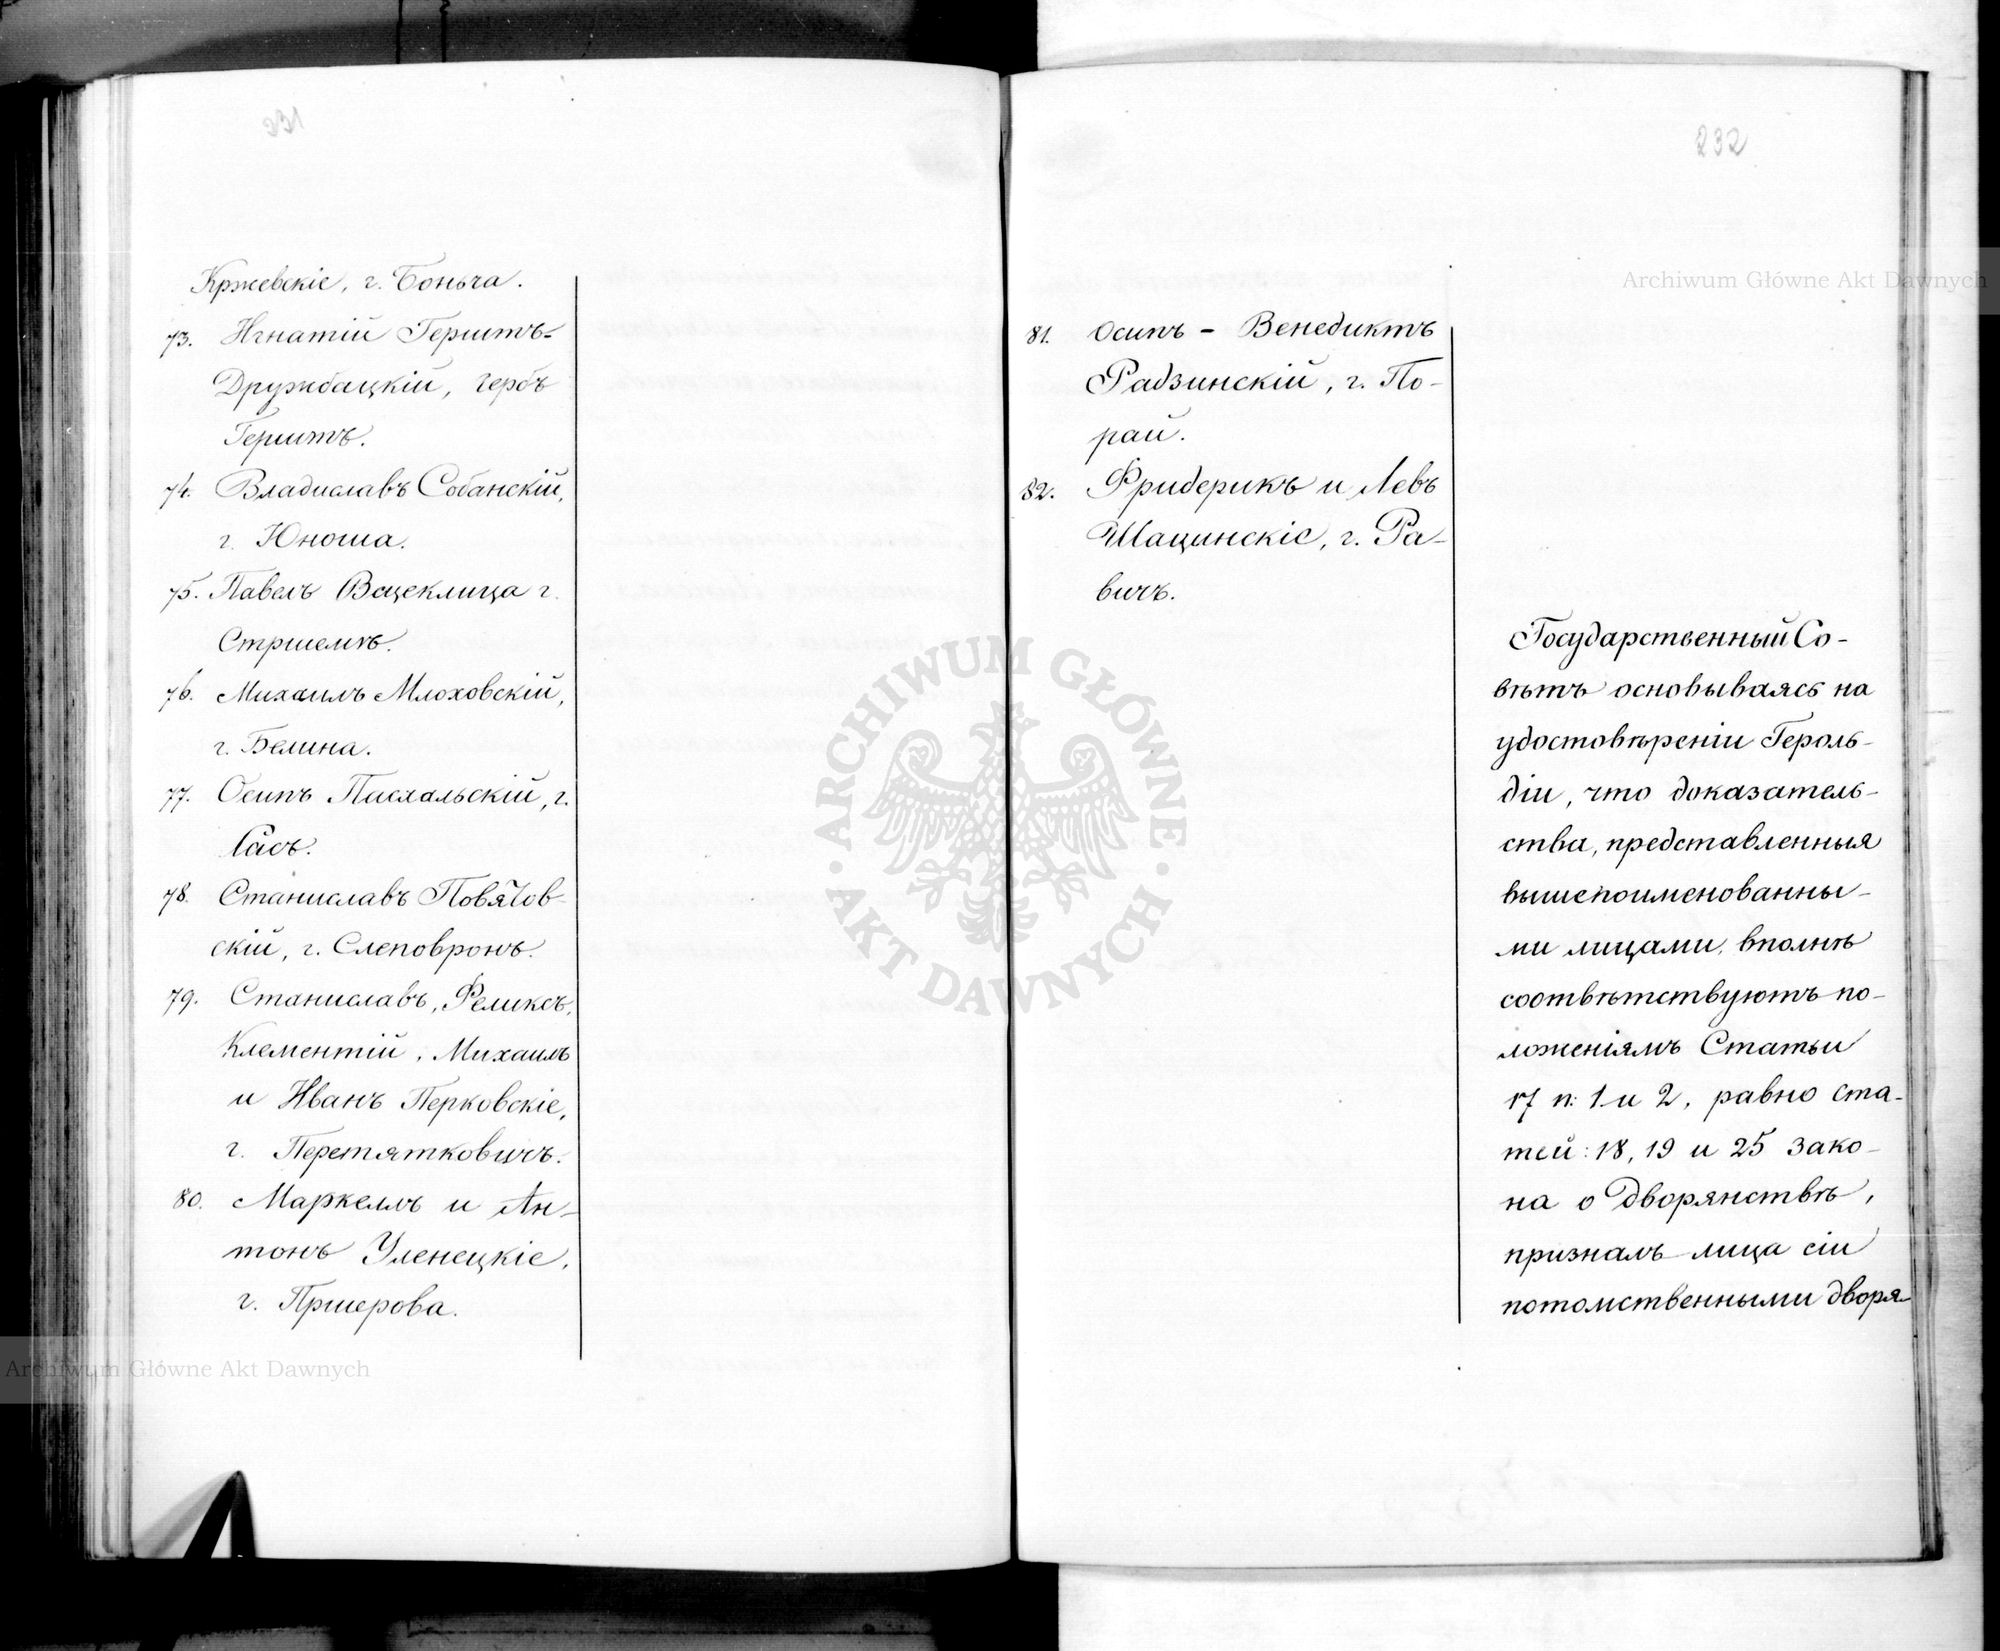 231
Кржевскіе, г. Боньча.
73. Игнатій Герштъ-
Дружбацкій, гербъ
Герштъ.
74. Владиславъ Собанскій,
г. Юноша.
75. Павелъ Вацеклица г.
Стршемѣ.
76. Михаилъ Млоховскій,
г. Белина.
77. Осипъ Пасхальскій, г.
Сасъ.
78. Станиславъ Повячов-
скій, г. Слеповронъ.
79. Станиславъ, Феликсъ,
Клементій, Михаилъ
и Иванъ Перковскіе,
г. Перетятковичъ.
80. Маркеллъ и Ан-
тонъ Уленецкіе,
г. Пршерова.
Archiwum Główne Akt Dawnych
232
Archiwum Główne Akt Dawnych
81. Осипъ - Венедиктъ
Радзинскій, г. По-
рай.
82. Фридерикъ и Левъ
Шацинскіе, г. Ра-
вичъ.
Государственный Со-
вѣтъ основываясь на
удостовѣреніи Героль-
діи, что доказатель-
ства, представленныя
вышепоименованны-
ми лицами, вполнѣ
соотвѣтствуютъ по-
ложеніямъ Статьи
17 п: 1 и 2, равно ста-
тей: 18, 19 и 25 Зако-
на о Дворянствѣ,
призналъ лица сіи
потомственными дворя-
ARCHIWUM GŁÓWNE
AKT DAWNYCH